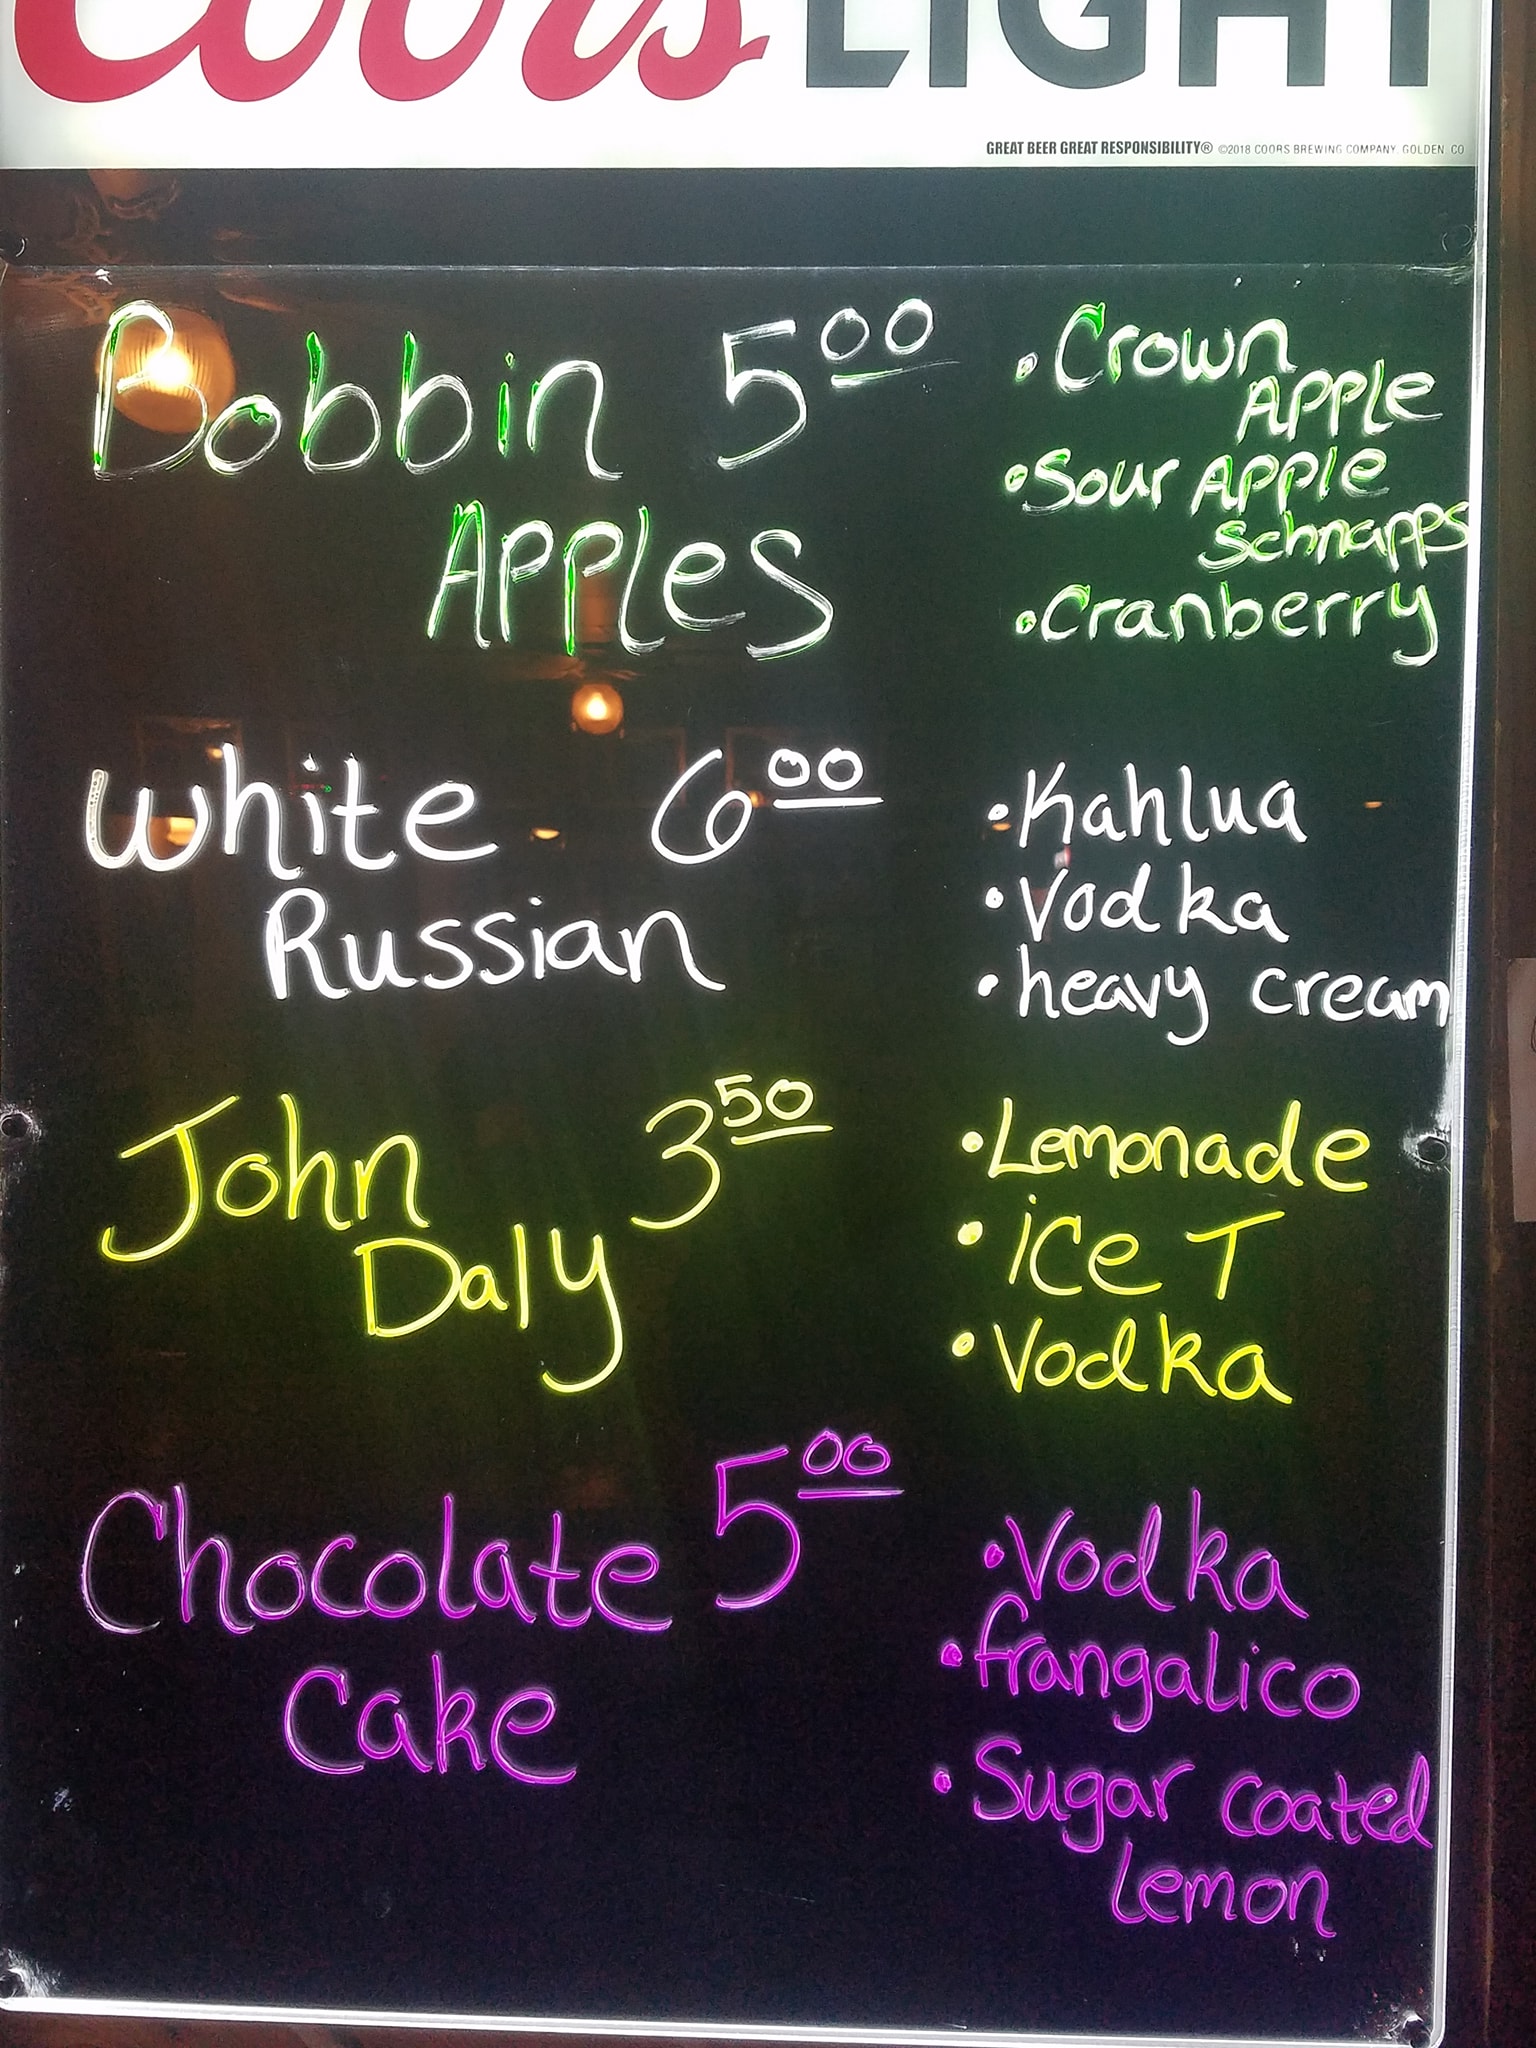 Coors LIGHT
GREAT BEER GREAT RESPONSIBILITY® ©2018 COORS BREWING COMPANY, GOLDEN, CO
Bobbin 5 00
Apples
• Crown
Apple
• Sour Apple
Schnapps
• Cranberry
White 6 00
Russian
• Kahlua
• Vodka
• heavy cream
John 3 50
Daly
• Lemonade
• ice T
• Vodka
Chocolate 5 00
Cake
• Vodka
• frangalico
• Sugar coated
lemon